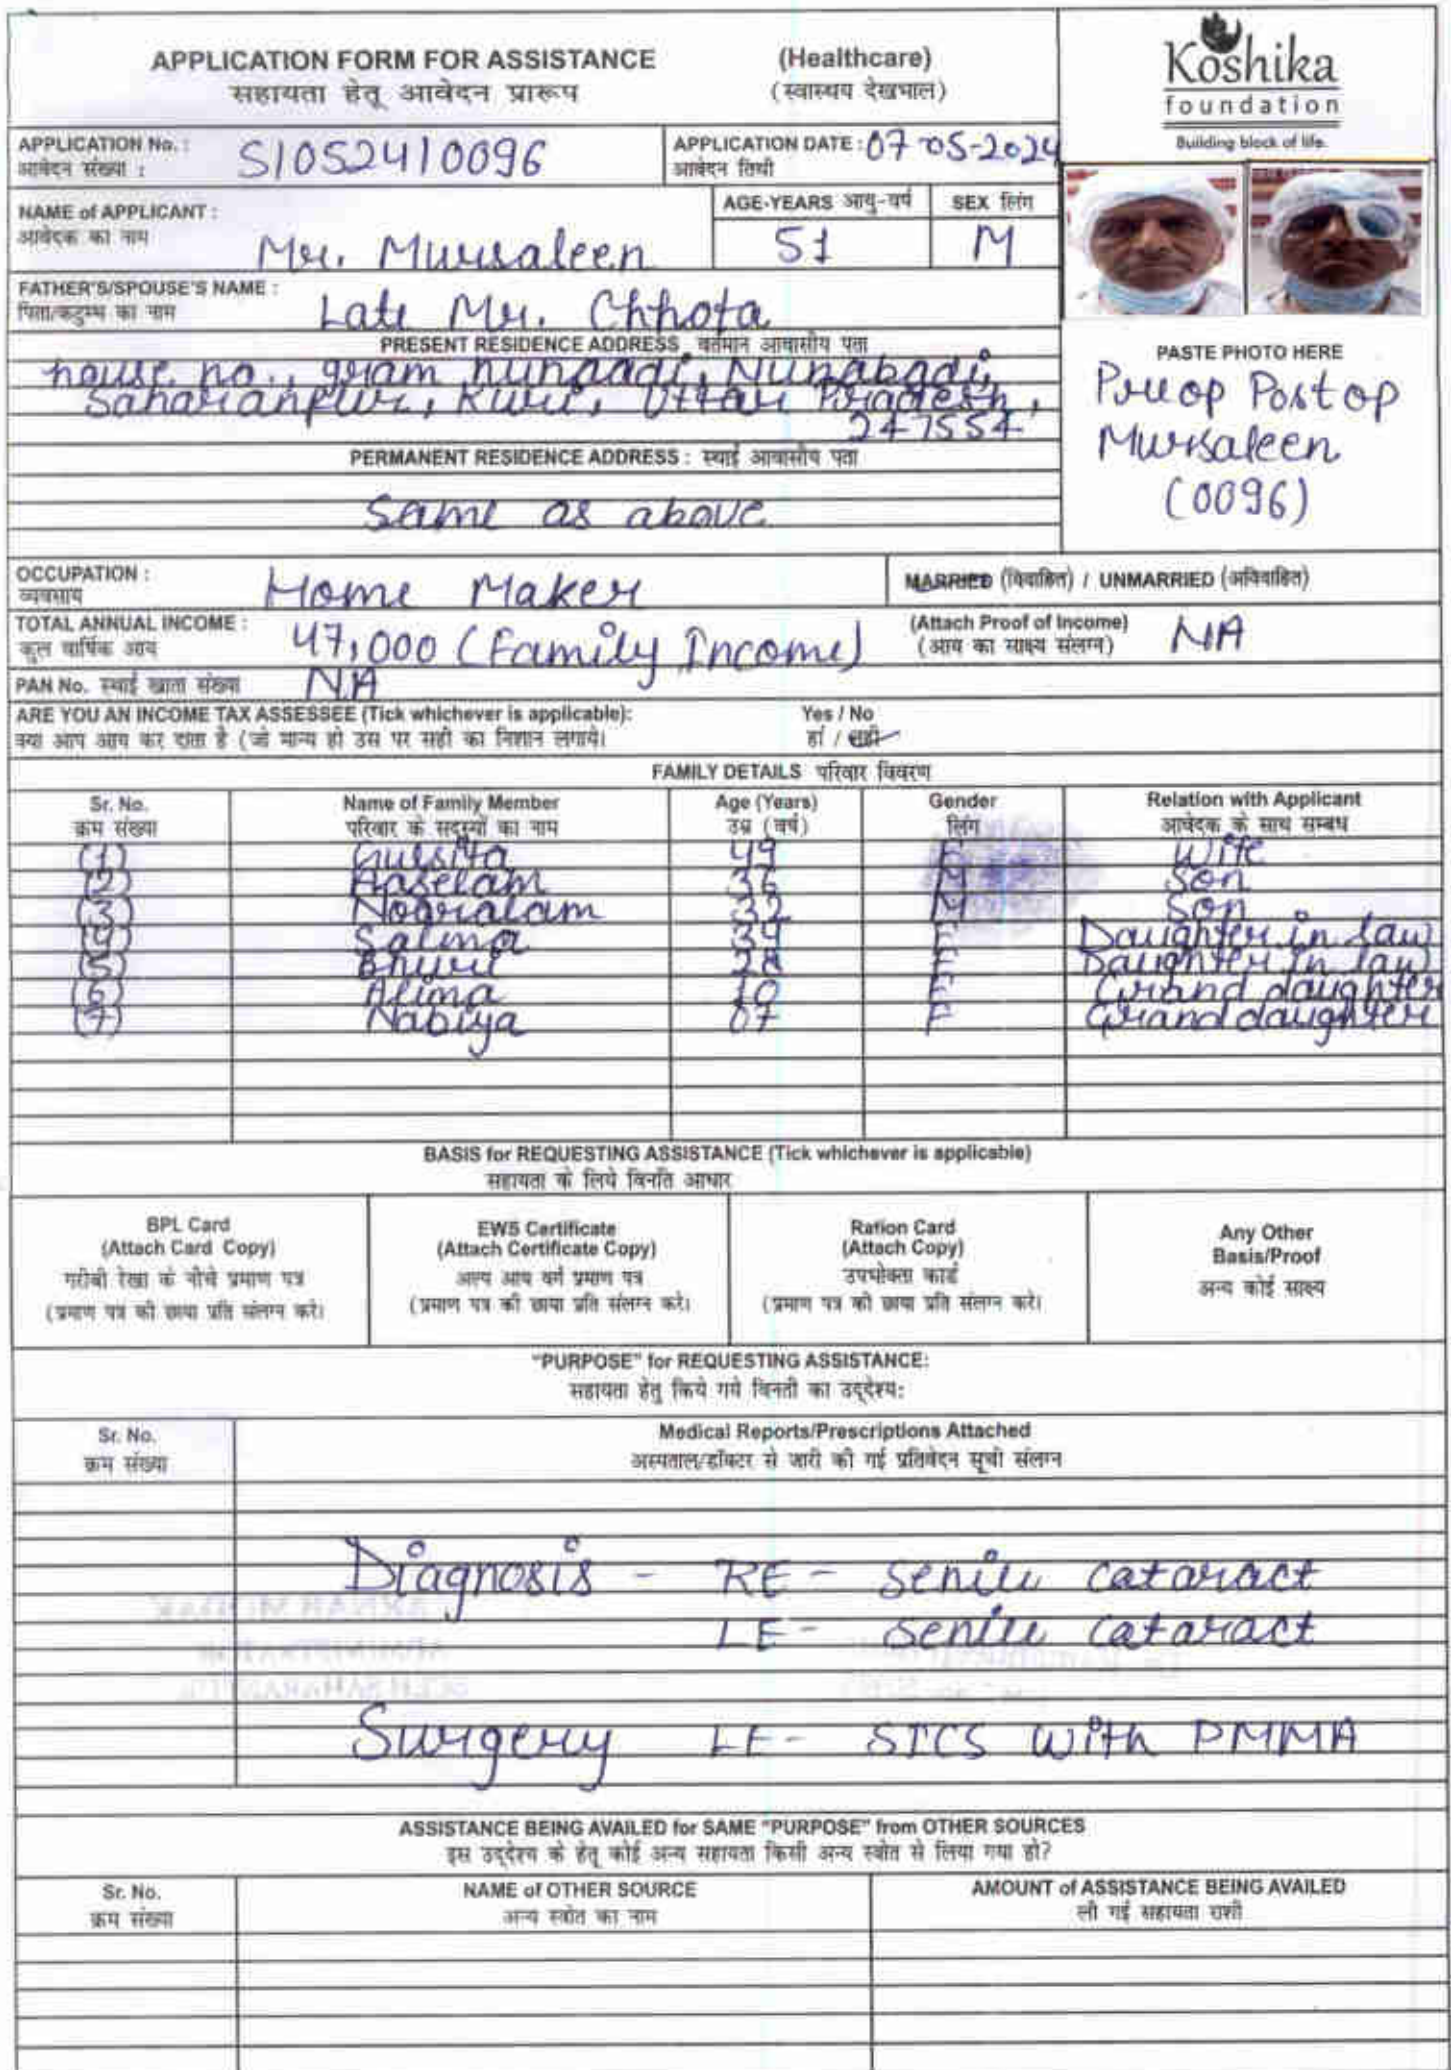 APPLICATION FORM FOR ASSISTANCE (Healthcare)
सहायता हेतू आवेदन प्रारूप (स्वास्थय देखभाल)
Koshika
foundation
Building block of life.
APPLICATION No. : S/0524/0096
आवेदन संख्या :
APPLICATION DATE : 07-05-2024
आवेदन तिथी
NAME of APPLICANT :
आवेदक का नाम
Mr. Mursaleen
AGE-YEARS आयु-वर्ष
51
SEX लिंग
M
FATHER'S/SPOUSE'S NAME :
पिता/कटुम्ब का नाम
Late Mr. Chhota
PRESENT RESIDENCE ADDRESS वर्तमान आवासीय पता
house no., gram
Saharanpur, Uttar Pradesh,
247554
PASTE PHOTO HERE
Pre op Post op
Mursaleen
(0096)
PERMANENT RESIDENCE ADDRESS : स्थाई आवासीय पता
Same as above
OCCUPATION : Home Maker
व्यवसाय
MARRIED (विवाहित) / UNMARRIED (अविवाहित)
TOTAL ANNUAL INCOME : 47,000 (Family Income)
कुल वार्षिक आय
(Attach Proof of Income) NA
(आय का साक्ष्य संलग्न)
PAN No. स्थाई खाता संख्या NA
ARE YOU AN INCOME TAX ASSESSEE (Tick whichever is applicable): Yes / No
क्या आप आय कर दाता है (जो मान्य हो उस पर सही का निशान लगाये। हां / नही
FAMILY DETAILS परिवार विवरण
Sr. No. Name of Family Member Age (Years) Gender Relation with Applicant
क्रम संख्या परिवार के सदस्यों का नाम उम्र (वर्ष) लिंग आवेदक के साथ सम्बध
(1) Gulsita 49 F Wife
(2) Aaselam 36 M Son
(3) Nooralam 32 M Son
(4) Salma 34 F Daughter in law
(5) Bhuri 28 F Daughter in law
(6) Alima 10 F Grand daughter
(7) Nabiya 07 F Grand daughter
BASIS for REQUESTING ASSISTANCE (Tick whichever is applicable)
सहायता के लिये विनति आधार
BPL Card
(Attach Card Copy)
गरीबी रेखा के नीचे प्रमाण पत्र
(प्रमाण पत्र की छाया प्रति संलग्न करे।
EWS Certificate
(Attach Certificate Copy)
अल्प आय वर्ग प्रमाण पत्र
(प्रमाण पत्र की छाया प्रति संलग्न करे।
Ration Card
(Attach Copy)
उपभोक्ता कार्ड
(प्रमाण पत्र की छाया प्रति संलग्न करे।
Any Other
Basis/Proof
अन्य कोई साक्ष्य
"PURPOSE" for REQUESTING ASSISTANCE:
सहायता हेतु किये गये विनती का उद्देश्य:
Sr. No. Medical Reports/Prescriptions Attached
क्रम संख्या अस्पताल/डॉक्टर से जारी की गई प्रतिवेदन सूची संलग्न
Diagnosis - RE - Senile cataract
LE - Senile cataract
Surgery LE - SICS with PMMA
ASSISTANCE BEING AVAILED for SAME "PURPOSE" from OTHER SOURCES
इस उद्देश्य के हेतू कोई अन्य सहायता किसी अन्य स्त्रोत से लिया गया हो?
Sr. No. NAME of OTHER SOURCE AMOUNT of ASSISTANCE BEING AVAILED
क्रम संख्या अन्य स्त्रोत का नाम ली गई सहायता राशी